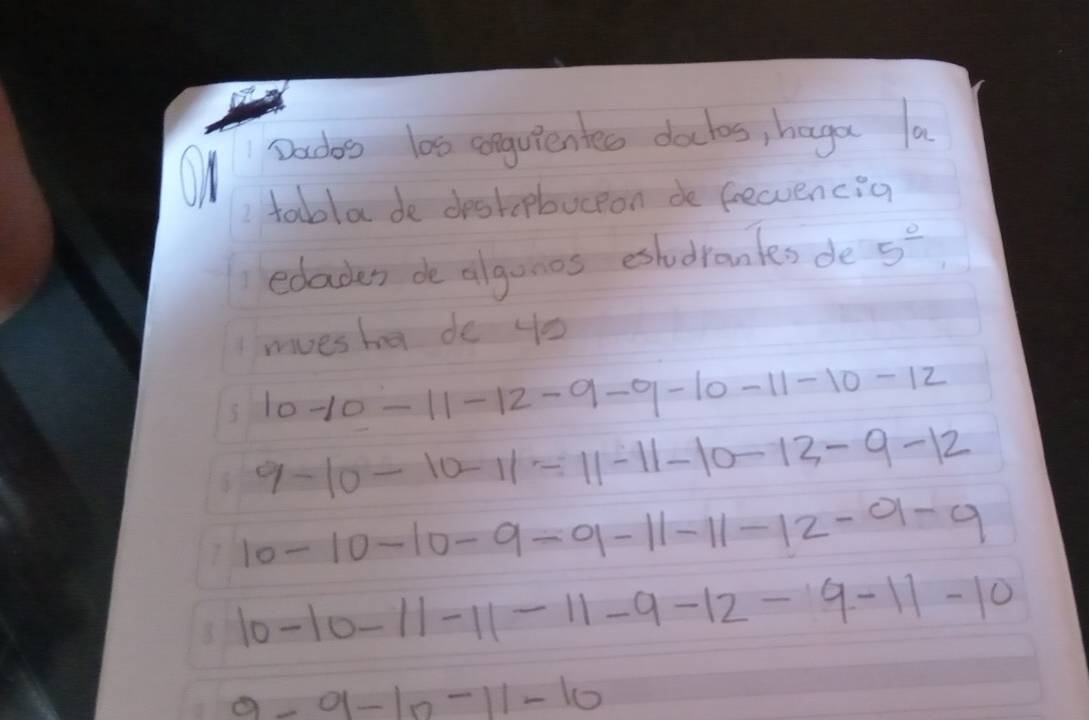 Dados los siguientes datos, haga la
tabla de destripbuceon de frecuencia
edades de algunos estudiantes de 5º.
muestra de 40
10-10-11-12-9-9-10-11-10-12
9-10-10-11-11-11-10-12-9-12
10-10-10-9-9-11-11-12-9-9
10-10-11-11-11-9-12-9-11-10
9-9-10-11-10